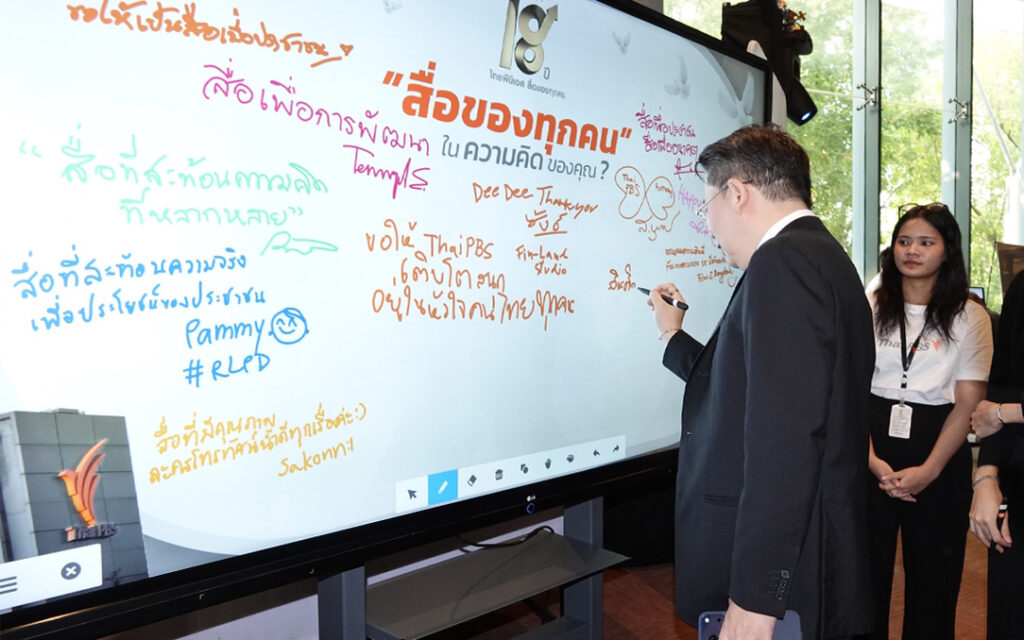 ขอให้เป็นสื่อเพื่อประชาชน
18 ปี
ไทยพีบีเอส สื่อของทุกคน
"สื่อของทุกคน"
ในความคิดของคุณ?
สื่อเพื่อการพัฒนา
"สื่อที่สะท้อนความคิด
ที่หลากหลาย"
สื่อที่สะท้อนความจริง
เพื่อประโยชน์ของประชาชน
Pammy
#RLPD
สื่อที่มีคุณภาพ
ละครโทรทัศน์น้ำดีทุกเรื่องค่ะ :)
Dee Dee
Fin-Land
Studio
ขอให้ ThaiPBS
เติบโต
อยู่ในหัวใจคนไทยทุกคน
สื่อเพื่อประชาชน
Thai
PBS
Thai PBS
ThaiPBS
LG